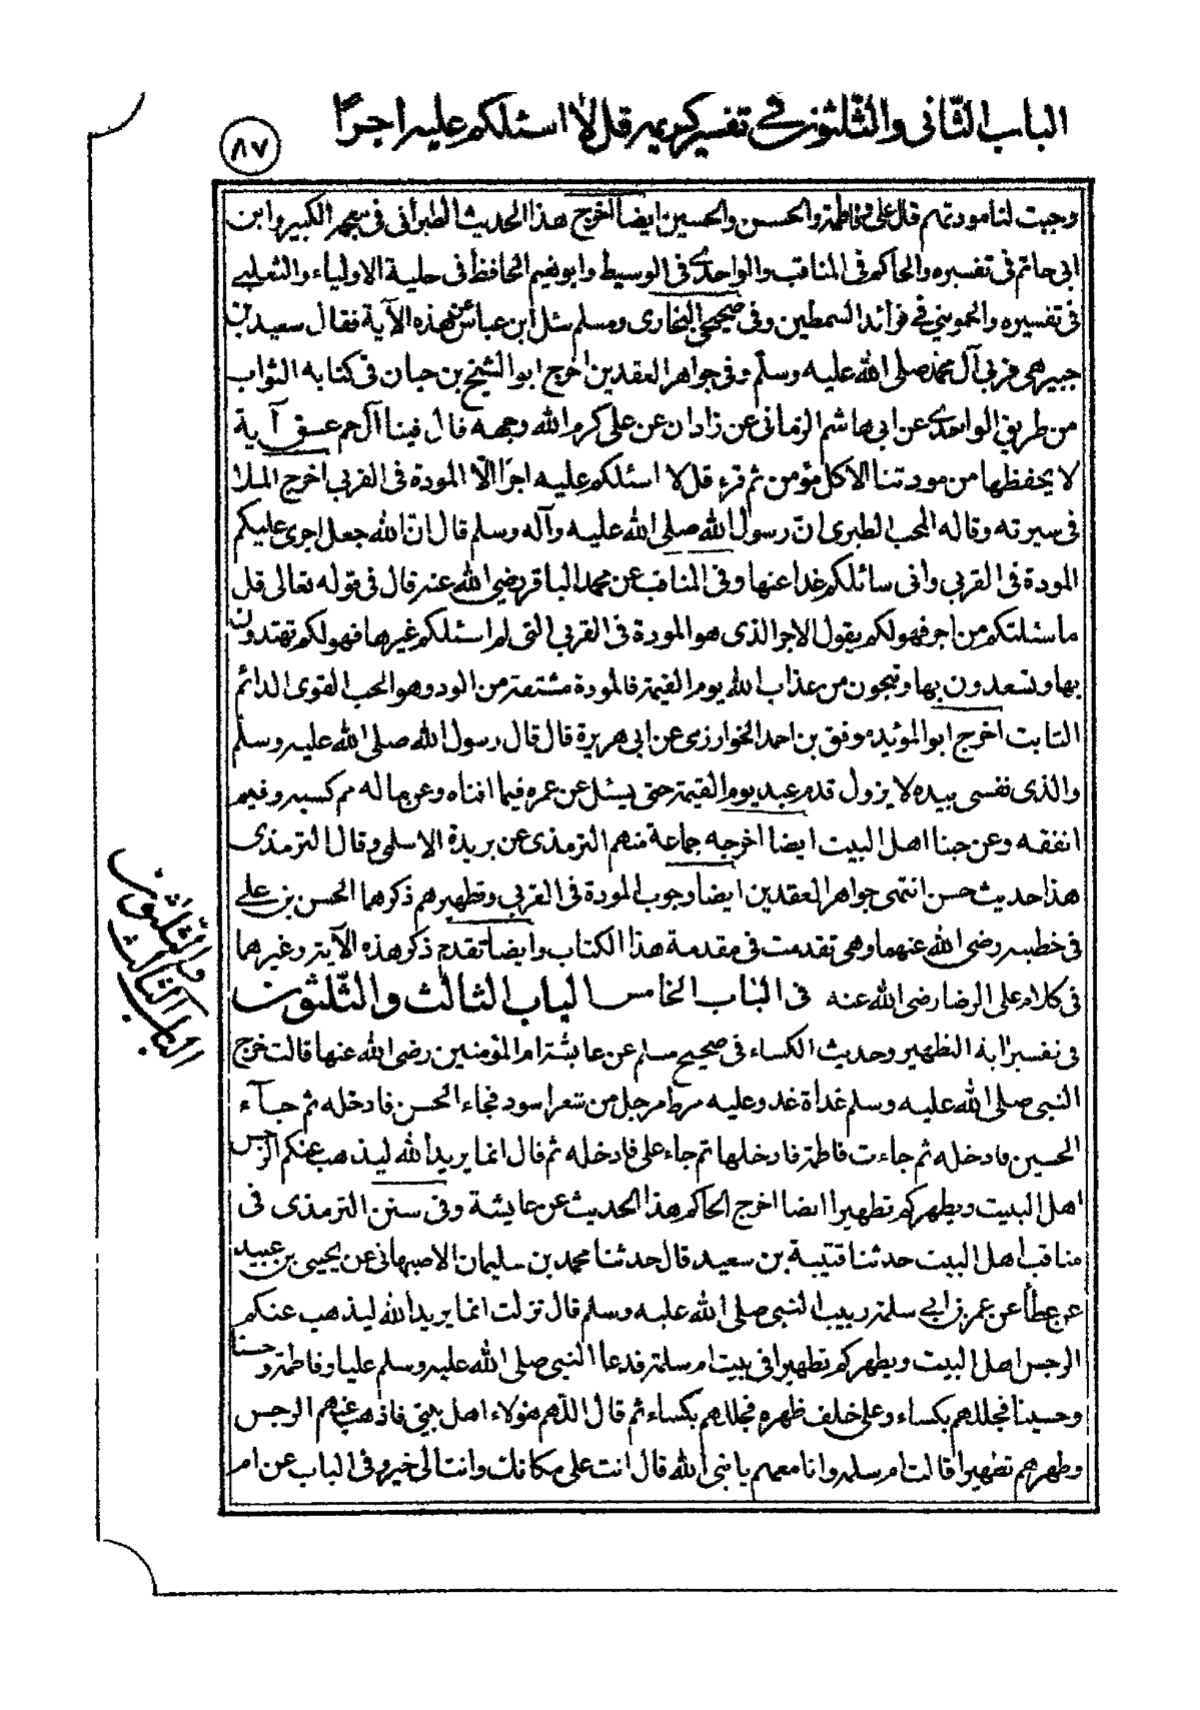 الباب الثانى والثلثون فى تفسير كريمه قل لا اسئلكم عليه اجرا
٨٧
وجبت لنا مودتهم قال على وفاطمة والحسن والحسين ايضا اخرج هذا الحديث الطبرانى فى معجمه الكبير وابن
ابى حاتم فى تفسيره والحاكم فى المناقب والواحدى فى الوسيط وابو نعيم الحافظ فى حلية الاولياء والثعلبى
فى تفسيره والحموينى فى فرائد السمطين وفى صحيحى البخارى ومسلم سئل ابن عباس عن هذه الآية فقال سعيد بن
جبير هى قربى آل محمد صلى الله عليه وسلم وفى جواهر العقدين اخرج ابو الشيخ بن حبان فى كتابه الثواب
من طريق الواحدى عن ابى هاشم الرمانى عن زادان عن على كرم الله وجهه قال فينا آل حم عسق آية
لا يحفظها من مودتنا الا كل مؤمن ثم قرء قل لا اسئلكم عليه اجرا الّا المودة فى القربى اخرج الملا
فى سيرته وقاله المحب الطبرى انّ رسول الله صلى الله عليه وآله وسلم قال انّ الله جعل اجرى عليكم
المودة فى القربى وانى سائلكم غدا عنها وفى المناقب عن محمد الباقر رضى الله عنه قال فى قوله تعالى قل
ما سئلتكم من اجر فهو لكم يقول الاجر الذى هو المودة فى القربى التى لم اسئلكم غيرها فهو لكم تهتدون
بها وتسعدون بها وتنجون من عذاب الله يوم القيمة فالمودة مشتقة من الود وهو الحب القوى الدائم
الثابت اخرج ابو المؤيد موفق بن احمد الخوارزمى عن ابى هريرة قال قال رسول الله صلى الله عليه وسلم
والذى نفسى بيده لا يزول قدم عبد يوم القيمة حتى يسئل عن عمره فيما افناه وعن ماله مم كسبه وفيم
انفقه وعن حبنا اهل البيت ايضا اخرجه جماعة منهم الترمذى عن بريدة الاسلمى وقال الترمذى
هذا حديث حسن انتهى جواهر العقدين ايضا وجوب المودة فى القربى وتطهيرهم ذكرهما الحسن بن على
فى خطبه رضى الله عنهما وهى تقدمت فى مقدمة هذا الكتاب وايضا تقدم ذكر هذه الآية وغيرهما
فى كلام على الرضا رضى الله عنه فى الباب الخامس الباب الثالث والثلثون
فى تفسير اية التطهير وحديث الكساء فى صحيح مسلم عن عايشة ام المؤمنين رضى الله عنها قالت خرج
النبى صلى الله عليه وسلم غداة غد وعليه مرط مرجل من شعر اسود فجاء الحسن فادخله ثم جآء
الحسين فادخله ثم جاءت فاطمة فادخلها ثم جاء على فادخله ثم قال انما يريد الله ليذهب عنكم الرجس
اهل البيت ويطهركم تطهيرا ايضا اخرج الحاكم هذا الحديث عن عايشة وفى سنن الترمذى فى
مناقب اهل البيت حدثنا قتيبة بن سعيد قال حدثنا محمد بن سليمان الاصبهانى عن يحيى بن عبيد
عن عطأ عن عمر بن ابى سلمة ربيب النبى صلى الله عليه وسلم قال نزلت انما يريد الله ليذهب عنكم
الرجس اهل البيت ويطهركم تطهيرا فى بيت ام سلمة فدعا النبى صلى الله عليه وسلم عليا وفاطمة وحسنا
وحسينا فجللهم بكساء وعلى خلف ظهره فجللهم بكساء ثم قال اللهم هؤلاء اهل بيتى فاذهب عنهم الرجس
وطهرهم تطهيرا قالت ام سلمه وانا معهم يا نبى الله قال انت على مكانك وانت الى خير وفى الباب عن ام
الباب الثالث
والثلثون